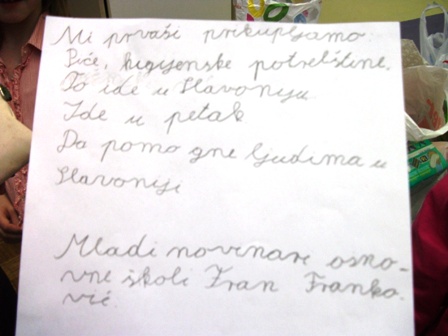 Mi prvaši prikupljamo:
Piće, higijenske potrebštine.
To ide u Slavoniju.
Ide u petak
Da pomo gne ljudima u
Slavoniji
Mladi novinare osno-
vne školi Fran Franko.
vić.